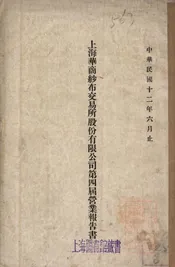 中華民國十二年六月止
上海華商紗布交易所股份有限公司第四屆營業報告書
上海圖書館藏書